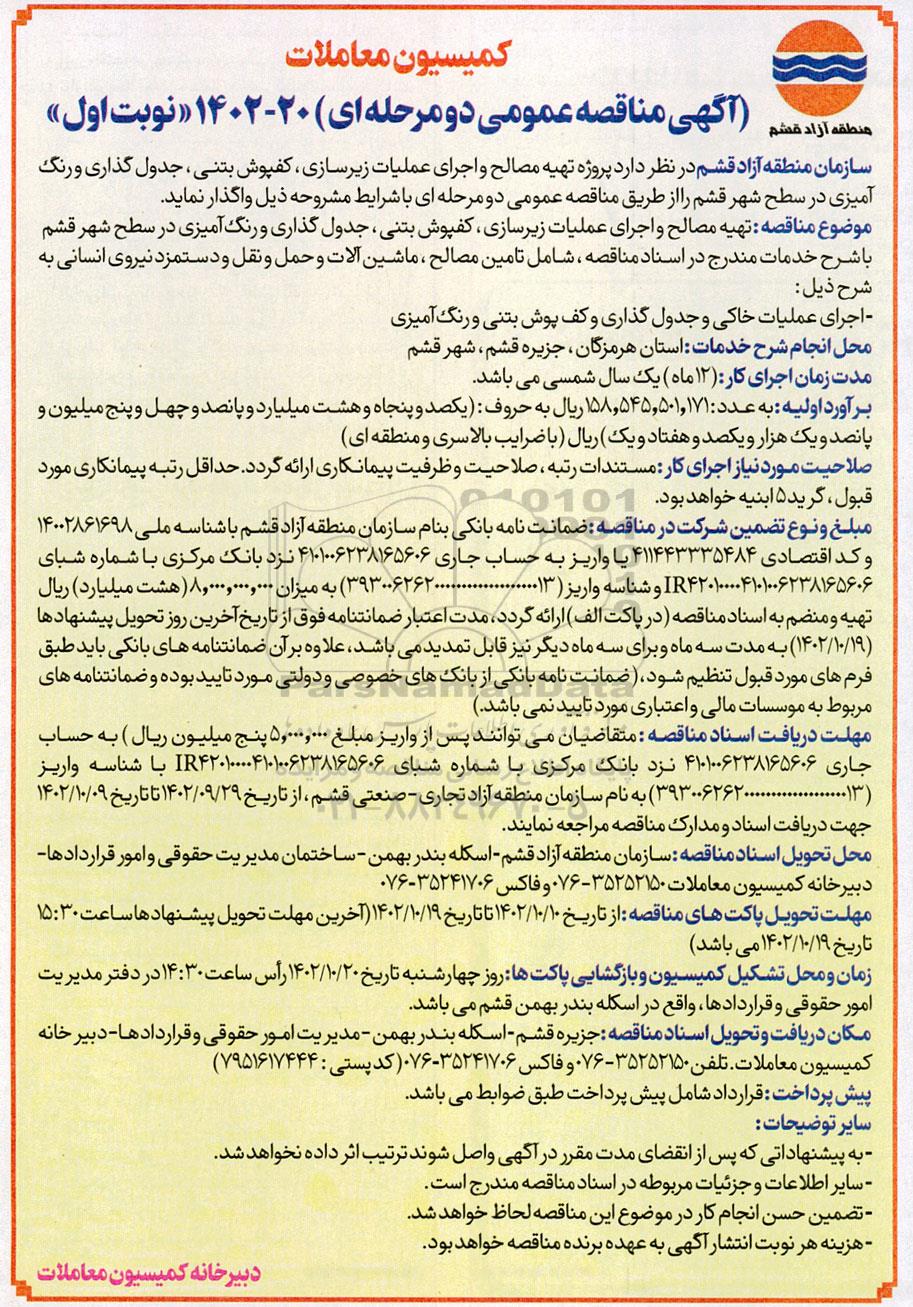 کمیسیون معاملات
منطقه آزاد قشم
(آگهی مناقصه عمومی دو مرحله ای) ۲۰-۱۴۰۲ «نوبت اول»
سازمان منطقه آزاد قشم در نظر دارد پروژه تهیه مصالح و اجرای عملیات زیرسازی، کفپوش بتنی، جدول گذاری و رنگ
آمیزی در سطح شهر قشم را از طریق مناقصه عمومی دو مرحله ای با شرایط مشروحه ذیل واگذار نماید.
موضوع مناقصه: تهیه مصالح و اجرای عملیات زیرسازی، کفپوش بتنی، جدول گذاری و رنگ آمیزی در سطح شهر قشم
با شرح خدمات مندرج در اسناد مناقصه، شامل تامین مصالح، ماشین آلات و حمل و نقل و دستمزد نیروی انسانی به
شرح ذیل:
-اجرای عملیات خاکی و جدول گذاری و کف پوش بتنی و رنگ آمیزی
محل انجام شرح خدمات: استان هرمزگان، جزیره قشم، شهر قشم
مدت زمان اجرای کار: (۱۲ ماه) یک سال شمسی می باشد.
برآورد اولیه: به عدد: ۱۵۸,۵۴۵,۵۰۱,۱۷۱ ریال به حروف: (یکصد و پنجاه و هشت میلیارد و پانصد و چهل و پنج میلیون و
پانصد و یک هزار و یکصد و هفتاد و یک) ریال (با ضرایب بالاسری و منطقه ای)
صلاحیت مورد نیاز اجرای کار: مستندات رتبه، صلاحیت و ظرفیت پیمانکاری ارائه گردد. حداقل رتبه پیمانکاری مورد
قبول، گرید ۵ ابنیه خواهد بود.
مبلغ و نوع تضمین شرکت در مناقصه: ضمانت نامه بانکی بنام سازمان منطقه آزاد قشم با شناسه ملی ۱۴۰۰۲۸۶۱۶۹۸
و کد اقتصادی ۴۱۱۴۴۳۳۳۵۴۸۴ یا واریز به حساب جاری ۴۱۰۱۰۰۶۲۳۸۱۶۵۶۰۶ نزد بانک مرکزی با شماره شبای
IR۴۲۰۱۰۰۰۰۴۱۰۱۰۰۶۲۳۸۱۶۵۶۰۶ و شناسه واریز به میزان ۸,۰۰۰,۰۰۰,۰۰۰ (هشت میلیارد) ریال
تهیه و منضم به اسناد مناقصه (در پاکت الف) ارائه گردد، مدت اعتبار ضمانتنامه فوق از تاریخ آخرین روز تحویل پیشنهادها
(۱۴۰۲/۱۰/۱۹) به مدت سه ماه و برای سه ماه دیگر نیز قابل تمدید می باشد، علاوه بر آن ضمانتنامه های بانکی باید طبق
فرم های مورد قبول تنظیم شود، (ضمانت نامه بانکی از بانک های خصوصی و دولتی مورد تایید بوده و ضمانتنامه های
مربوط به موسسات مالی و اعتباری مورد تایید نمی باشد.)
مهلت دریافت اسناد مناقصه: متقاضیان می توانند پس از واریز مبلغ ۵,۰۰۰,۰۰۰ پنج میلیون ریال) به حساب
جاری ۴۱۰۱۰۰۶۲۳۸۱۶۵۶۰۶ نزد بانک مرکزی با شماره شبای IR۴۲۰۱۰۰۰۰۴۱۰۱۰۰۶۲۳۸۱۶۵۶۰۶ با شناسه واریز
به نام سازمان منطقه آزاد تجاری - صنعتی قشم، از تاریخ ۱۴۰۲/۰۹/۲۹ تا تاریخ ۱۴۰۲/۱۰/۰۹
جهت دریافت اسناد و مدارک مناقصه مراجعه نمایند.
محل تحویل اسناد مناقصه: سازمان منطقه آزاد قشم - اسکله بندر بهمن - ساختمان مدیریت حقوقی و امور قراردادها-
دبیرخانه کمیسیون معاملات ۳۵۲۵۲۱۵۰-۰۷۶ و فاکس ۳۵۲۴۱۷۰۶-۰۷۶
مهلت تحویل پاکت های مناقصه: از تاریخ ۱۴۰۲/۱۰/۱۰ تا تاریخ ۱۴۰۲/۱۰/۱۹ (آخرین مهلت تحویل پیشنهادها ساعت ۱۵:۳۰
تاریخ ۱۴۰۲/۱۰/۱۹ می باشد)
زمان و محل تشکیل کمیسیون و بازگشایی پاکت ها: روز چهارشنبه تاریخ ۱۴۰۲/۱۰/۲۰ رأس ساعت ۱۴:۳۰ در دفتر مدیریت
امور حقوقی و قراردادها، واقع در اسکله بندر بهمن قشم می باشد.
مکان دریافت و تحویل اسناد مناقصه: جزیره قشم - اسکله بندر بهمن - مدیریت امور حقوقی و قراردادها - دبیر خانه
کمیسیون معاملات. تلفن ۳۵۲۵۲۱۵۰-۰۷۶ و فاکس ۳۵۲۴۱۷۰۶-۰۷۶ (کد پستی: ۷۹۵۱۶۱۷۴۴۴)
پیش پرداخت: قرارداد شامل پیش پرداخت طبق ضوابط می باشد.
سایر توضیحات:
-به پیشنهاداتی که پس از انقضای مدت مقرر در آگهی واصل شوند ترتیب اثر داده نخواهد شد.
-سایر اطلاعات و جزئیات مربوطه در اسناد مناقصه مندرج است.
-تضمین حسن انجام کار در موضوع این مناقصه لحاظ خواهد شد.
-هزینه هر نوبت انتشار آگهی به عهده برنده مناقصه خواهد بود.
دبیرخانه کمیسیون معاملات
ParsNamadData